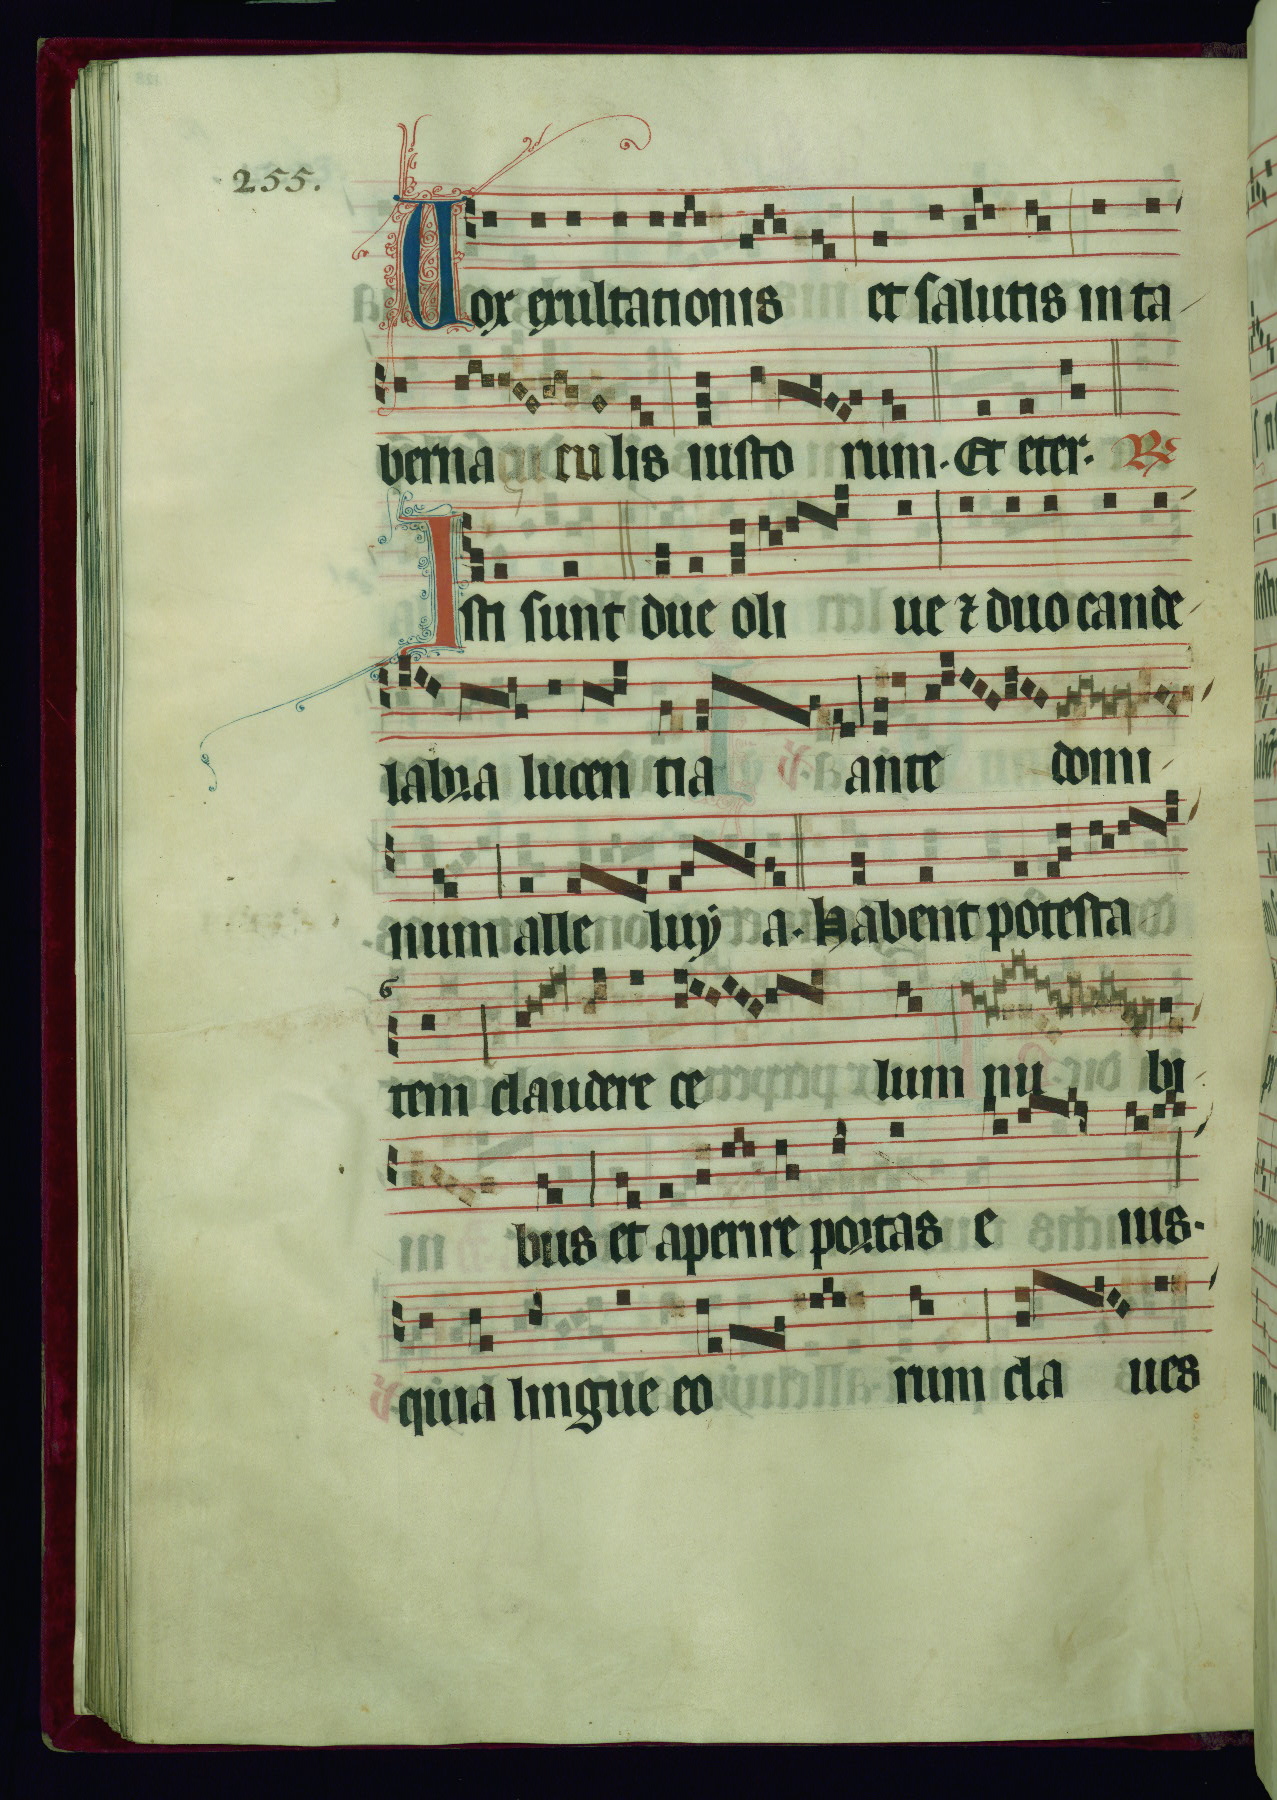 255.
Vox exultationis et salutis in ta
bernaculis iusto rum. Et eter. R
Isti sunt due oli ue ⁊ duo cande
labra lucen tia ante domi
num alle luÿ a. Habent potesta
tem claudere ce lum nu bi
bus et aperire portas e ius.
quia lingue eo rum cla ues